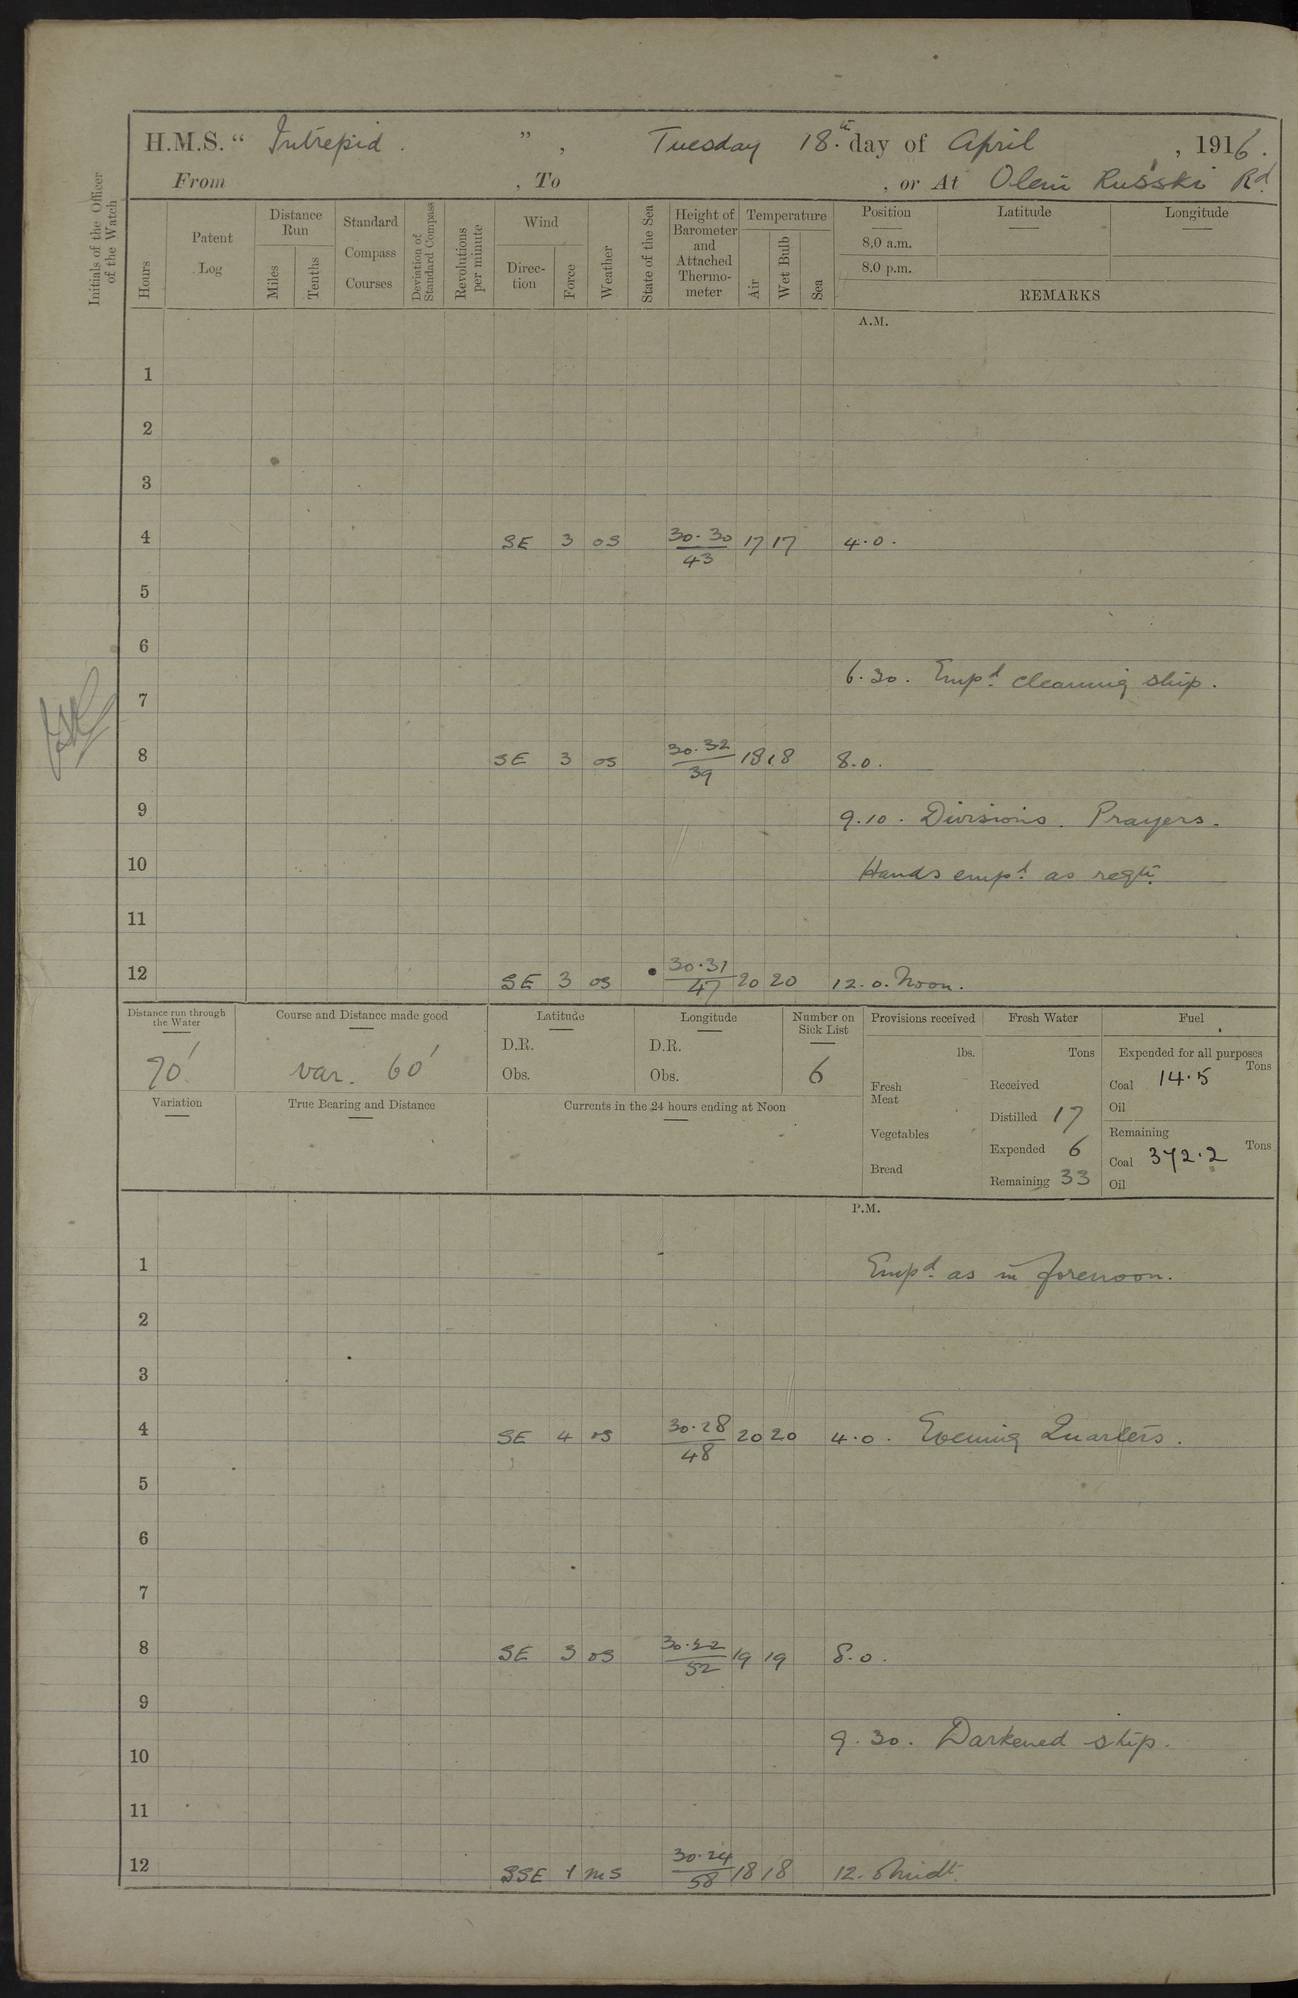 H.M.S. " Intrepid. ", Tuesday 18.th day of April, 1916.
From , To , or At Oleni Russki Rd.
Initials of the Officer of the Watch
Hours
Patent Log
Distance Run
Miles
Tenths
Standard Compass Courses
Deviation of Standard Compass
Revolutions per minute
Wind
Direction
Force
Weather
State of the Sea
Height of Barometer and Attached Thermometer
Temperature
Air
Wet Bulb
Sea
Position Latitude Longitude
8.0 a.m.
8.0 p.m.
REMARKS
A.M.
1
2
3
4 SE 3 os 30.30 43 17 17 4.0.
5
6
6.30. Empd. cleaning ship.
7
8 SE 3 os 30.32 39 18 18 8.0.
9 9.10. Divisions. Prayers.
10 Hands empd. as reqte.
11
12 SE 3 os 30.31 47 20 20 12.0. Noon.
Distance run through the Water
70'
Course and Distance made good
var. 60'
Latitude
D.R.
Obs.
Longitude
D.R.
Obs.
Number on Sick List
6
Variation
True Bearing and Distance
Currents in the 24 hours ending at Noon
Provisions received
lbs.
Fresh Meat
Vegetables
Bread
Fresh Water
Tons
Received
Distilled 17
Expended 6
Remaining 33
Fuel
Expended for all purposes
Tons
Coal 14.5
Oil
Remaining
Tons
Coal 372.2
Oil
P.M.
1 Empd. as in forenoon.
2
3
4 SE 4 os 30.28 48 20 20 4.0. Evening Quarters.
5
6
7
8 SE 3 os 30.22 52 19 19 8.0.
9
9.30. Darkened ship.
10
11
12 SSE 1 ms 30.24 58 18 18 12. Midt.